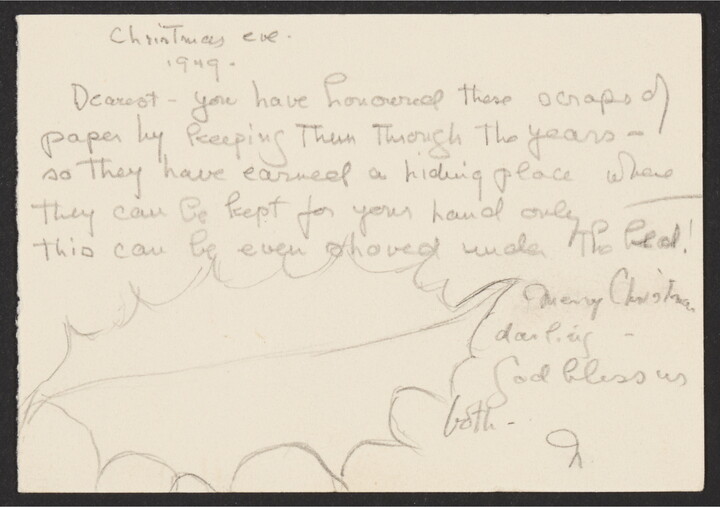 Christmas eve.
1949.
Dearest - you have honoured these scraps of
paper by keeping them through the years -
so they have earned a hiding place where
they can be kept for your hand only
this can be even shoved under the bed!
Merry Christmas
darling -
God bless us
both -